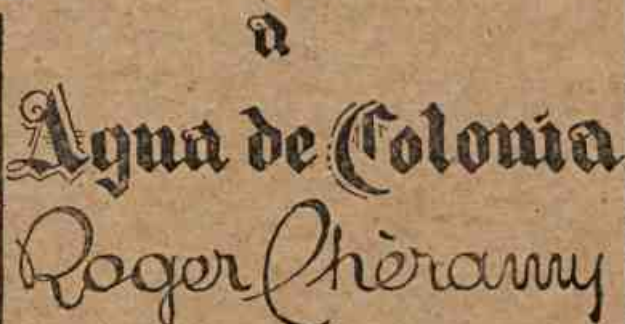 a
Agua de Colonia
Roger Chèramy